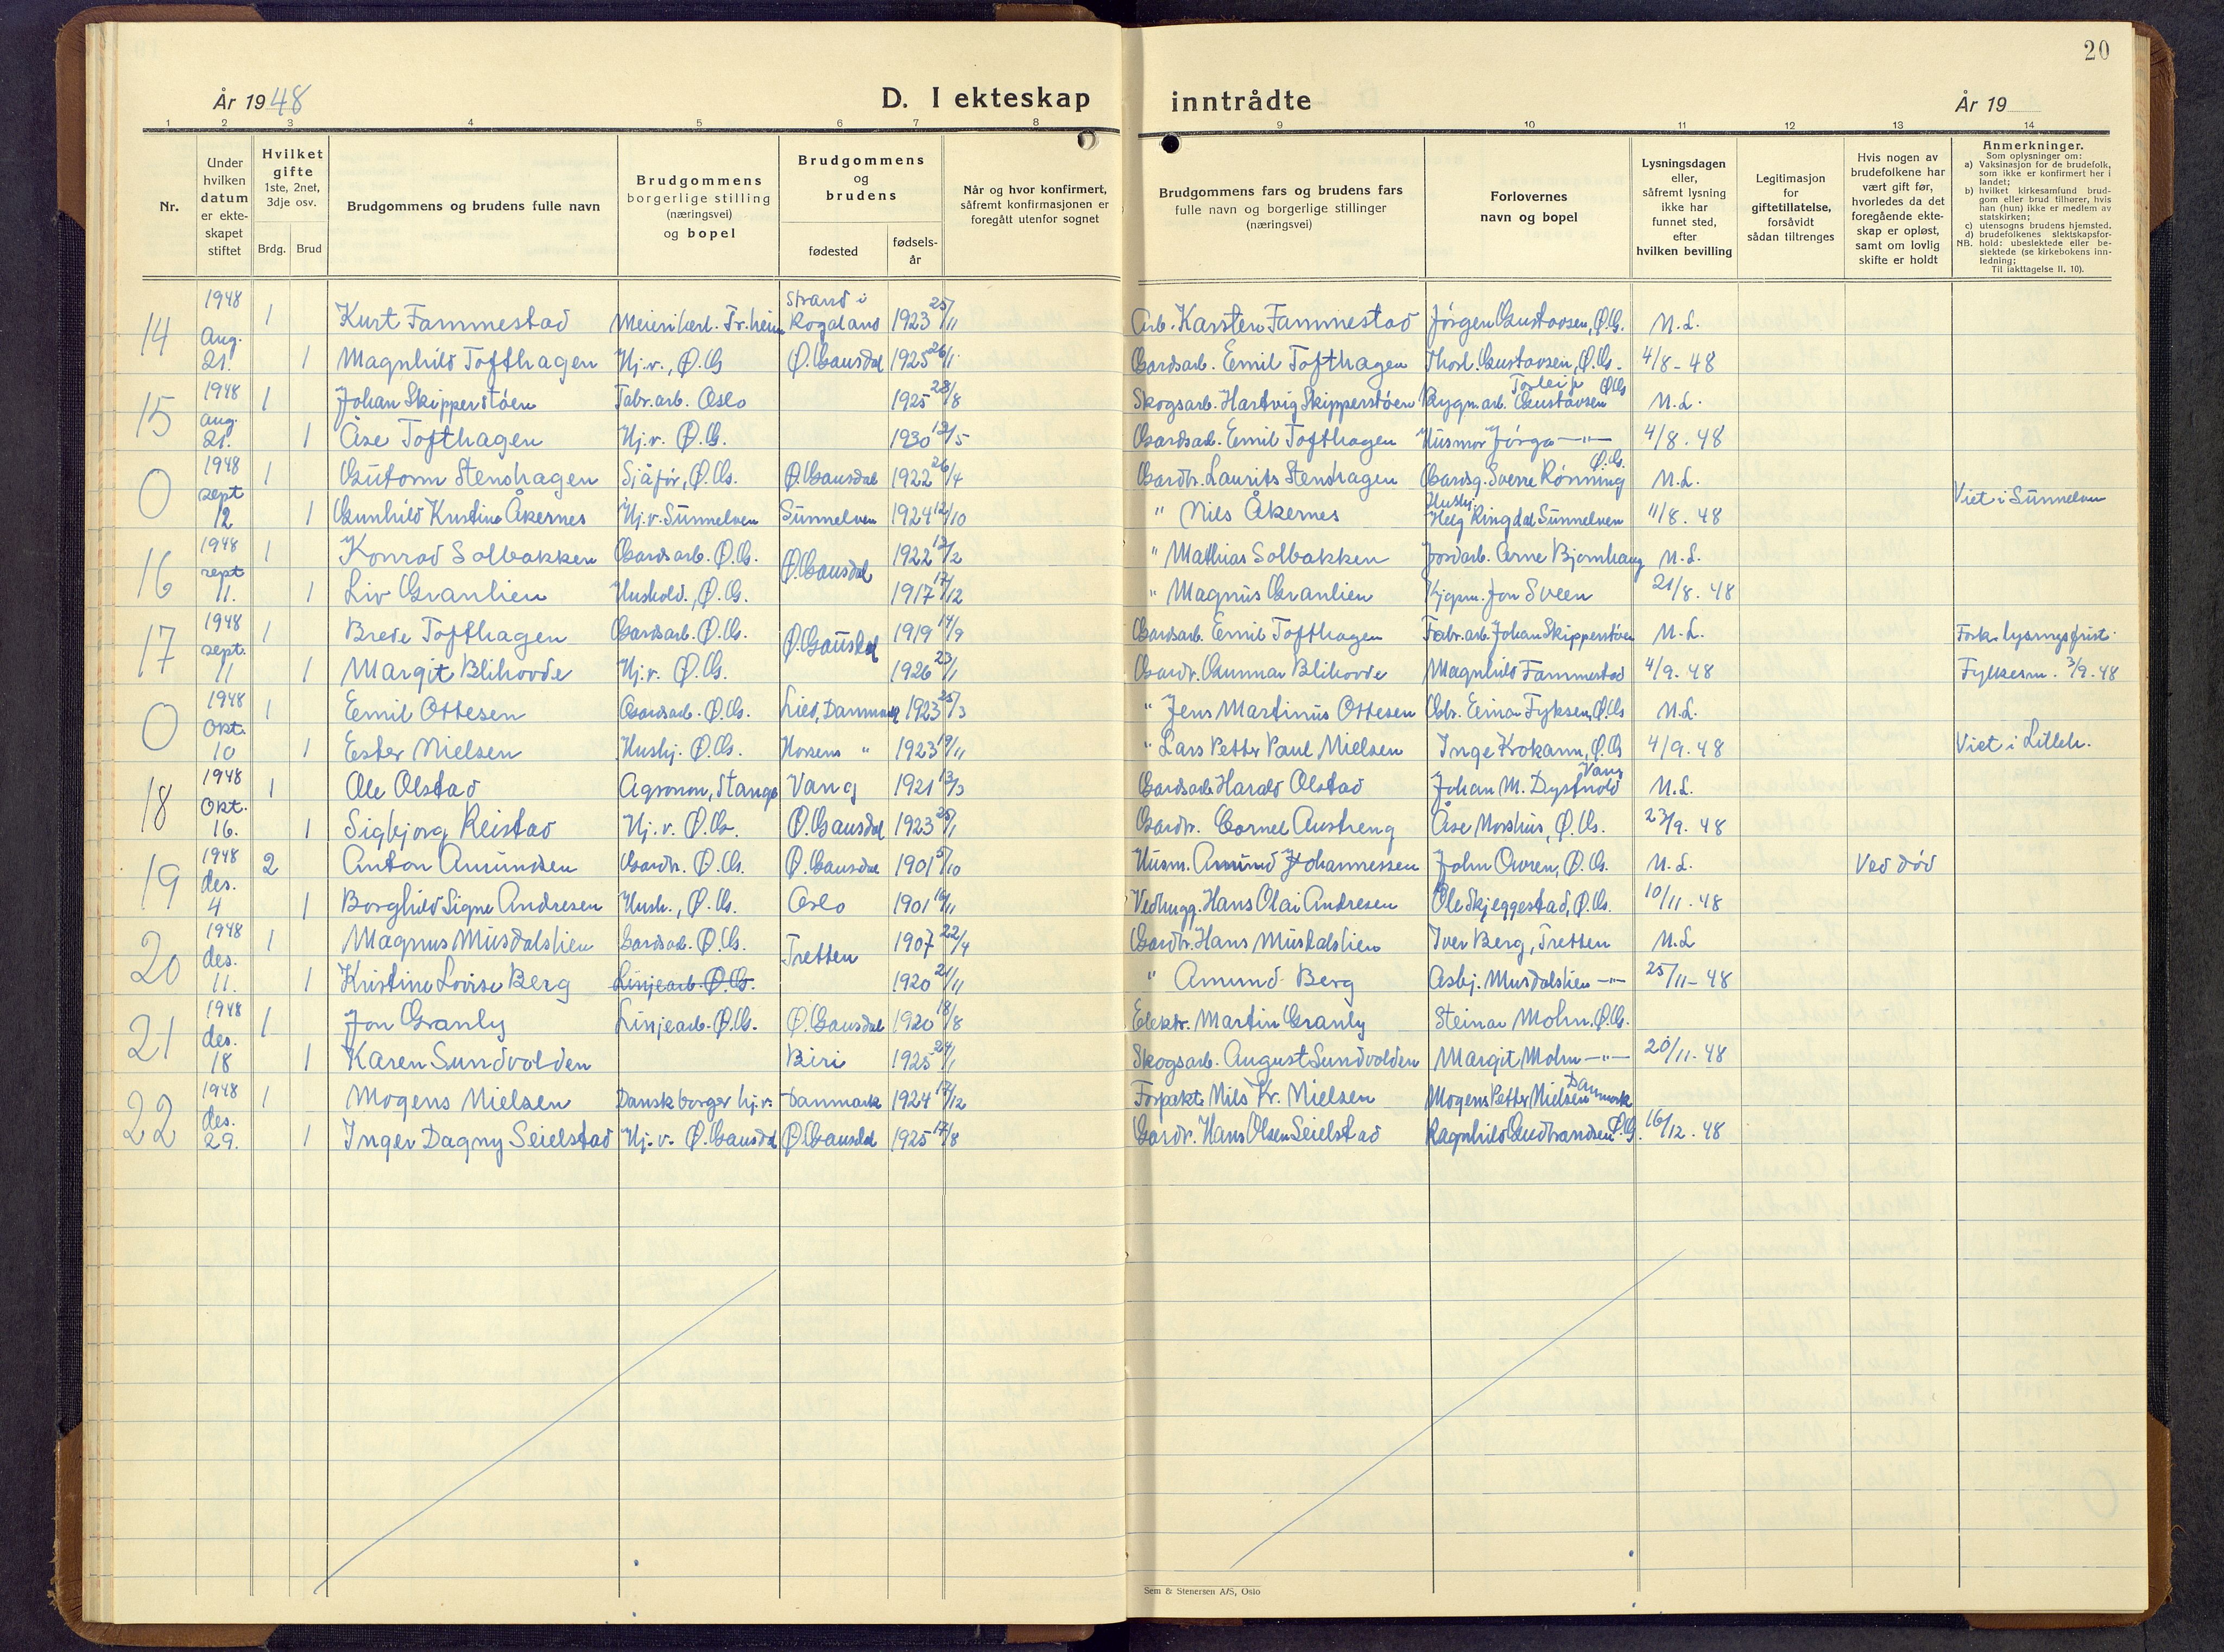 20
År 1948 D. I ekteskap inntrådte År 19
1 2 3 4 5 6 7 8 9 10 11 12 13 14
Nr.
Under hvilken datum er ekteskapet stiftet
Hvilket gifte 1ste, 2net, 3dje osv.
Brdg. Brud
Brudgommens og brudens fulle navn
Brudgommens borgerlige stilling (næringsvei) og bopel
Brudgommens og brudens
fødested
fødsels-år
Når og hvor konfirmert, såfremt konfirmasjonen er foregått utenfor sognet
Brudgommens fars og brudens fars fulle navn og borgerlige stillinger (næringsvei)
Forlovernes navn og bopel
Lysningsdagen eller, såfremt lysning ikke har funnet sted, efter hvilken bevilling
Legitimasjon for giftetillatelse, forsåvidt sådan tiltrenges
Hvis nogen av brudefolkene har vært gift før, hvorledes da det foregående ekteskap er opløst, samt om lovlig skifte er holdt
Anmerkninger.
Som oplysninger om:
a) Vaksinasjon for de brudefolk, som ikke er konfirmert her i landet;
b) hvilket kirkesamfund brudgom eller brud tilhører, hvis han (hun) ikke er medlem av statskirken;
c) utensogns brudens hjemsted.
d) brudefolkenes slektskapsforhold: ubeslektede eller beslektede (se kirkebokens innledning;
NB.
Til iakttagelse II. 10).
14 1948 Aug. 21. 1 Kurt Fammestad Meierikarl. Tr.heim Strand i Rogaland 1923 25/11 Arb. Karsten Fammestad Jørgen Gustavsen, Ø.G. M.L.
1 Magnhild Tofthagen Hj.v., Ø.G Ø.Gausdal 1925 26/1 Gardsarb. Emil Tofthagen Thorl. Gustavsen, Ø.G. 4/8-48
15 1948 aug. 21. 1 Johan Skipperstøen Fabr.arb. Oslo 1925 28/8 Skogsarb. Hartvig Skipperstøen Bygn.arb. Torleif Gustavsen Ø.G. M.L.
1 Åse Tofthagen Hj.v. Ø.G. 1930 12/5 Gardsarb. Emil Tofthagen Husmor Jørga —"— 4/8.48
0 1948 sept 12 1 Gutorm Stenshagen Sjåfør, Ø.G. Ø.Gausdal 1922 26/4 Gardbr. Laurits Stenshagen Gardsg. Sverre Rønning Ø.G. M.L.
1 Gunhild Kristine Åkernes Hj.v. Sunnelven Sunnelven 1924 12/10 " Nils Åkernes Hushj. Helg Ringdal Sunnelven 11/8.48 Viet i Sunnelven
16 1948 sept 11. 1 Konrad Solbakken Gardsarb. Ø.G. Ø.Gausdal 1922 13/2 " Mathias Solbakken Jordarb. Arne Bjørnhaug M.L.
1 Liv Granlien Hushold., Ø.G. 1917 17/12 " Magnus Granlien Kjøpm. Jon Sveen 21/8.48
17 1948 sept. 11 1 Brede Tofthagen Gardsarb. Ø.G. Ø.Gausdal 1919 14/9 Gardsarb. Emil Tofthagen Fabr.arb. Johan Skipperstøen M.L. Fork. lysningsfrist.
1 Margit Blihovde Hj.v. Ø.G. 1926 23/1 Gardbr. Gunnar Blihovde Magnhild Fammestad 4/9.48 Fylkesm. 3/9.48
0 1948 Okt. 10 1 Emil Ottesen Gardsarb. Ø.G. Lied, Danmark 1923 25/3 " Jens Martinus Ottesen Gbr. Einar Fyksen, Ø.G. M.L.
1 Ester Nielsen Hushj. Ø.G. Horsens " 1923 19/11 " Lars Petter Paul Nielsen Inge Krokann, Ø.G. 4/9.48 Viet i Lilleh.
18 1948 Okt. 16. 1 Ole Olstad Agronom, Stange Vang 1921 13/3 Gardsarb Harald Olstad Johan M. Dystvold Vang M.L.
1 Sigbjørg Reistad Hj.v. Ø.G. Ø.Gausdal 1923 25/1 Gardbr. Cornel Austreng Åse Morshus, Ø.G. 23/9.48
19 1948 des. 4 2 Anton Amundsen Gardbr. Ø.G. Ø.Gausdal 1901 5/10 Husm. Amund Johannessen John Owren, Ø.G. M.L. Ved død
1 Borghild Signe Andresen Hush., Ø.G. Oslo 1901 16/11 Vedhugg. Hans Olai Andresen Ole Skjeggestad, Ø.G. 10/11.48
20 1948 des. 11. 1 Magnus Musdalslien Gardsarb. Ø.G. Tretten 1907 22/4 Gardbr. Hans Musdalslien Iver Berg, Tretten M.L
1 Kristine Lovise Berg Linjearb. Ø.G. 1920 21/11 " Amund Berg Asbj. Musdalslien —"— 25/11-48
21 1948 des. 18 1 Jon Granly Linjearb. Ø.G. Ø.Gausdal 1920 18/8 Elektr. Martin Granly Steinar Mohn, Ø.G.
1 Karen Sundvolden Biri 1925 24/1 Skogsarb. August Sundvolden Margit Mohn —"— 20/11.48
22 1948 des. 29. 1 Mogens Nielsen Dansk borger hj.v. Danmark 1924 17/12 Forpakt. Nils Kr. Nielsen Mogens Petter Nielsen Danmark
1 Inger Dagny Seielstad Hj.v. Ø.Gausdal Ø.Gausdal 1925 17/8 Gardbr. Hans Olsen Seielstad Ragnhild Gudbrandsen Ø.G. 16/12.48
Sem & Stenersen A/S, Oslo